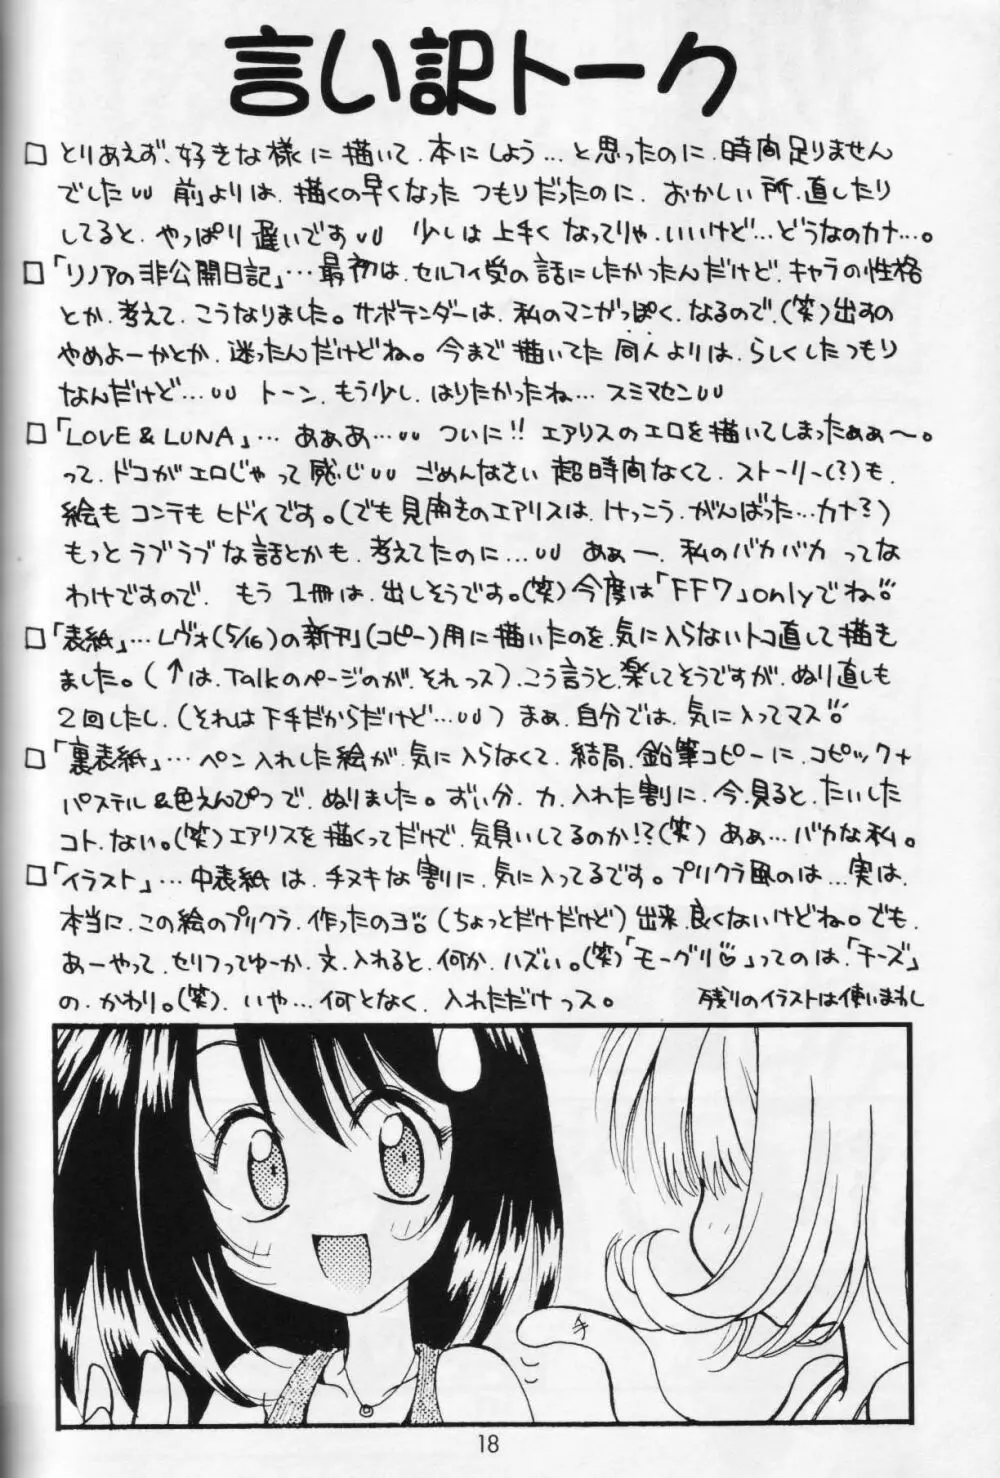 言い訳トーク
□ とりあえず、好きな様に描いて、本にしよう…と思ったのに、時間足りません
でした 前よりは、描くの早くなった つもりだったのに、おかしい所、直したり
してると、やっぱり遅いです 少しは上手くなってりゃ、いいけど…どうなのカナ…。
□「リノアの非公開日記」…最初は、セルフィ受の話にしたかったんだけど、キャラの性格
とか、考えて、こうなりました。サボテンダーは、私のマンがっぽく、なるので、(笑)出すの
やめよーかとか、迷ったんだけどね。今まで描いてた同人よりは、らしくしたつもり
なんだけど… トーン、もう少し、はりたかったね…スミマセン
□「LOVE & LUNA」…あぁあ… ついに!! エアリスのエロを描いてしまったぁぁ〜。
って、ドコがエロじゃって感じ ごめんなさい 超時間なくて、ストーリー(?)も、
絵もコンテもヒドイです。(でも見開きのエアリスは、けっこう、がんばった…カナ?)
もっとラブラブな話とかも、考えてたのに… あぁー、私のバカバカ ってな
わけですので、もう1冊は、出しそうです。(笑)今度は「FF7」onlyでね
□「表紙」…レヴォ(5/16)の新刊(コピー)用に描いたのを、気に入らないトコ直して描き
ました。(↑は、Talkのページのが、それっス)、こう言うと、楽してそうですが、ぬり直しも
2回したし、(それは下手だからだけど…) まぁ、自分では、気に入ってマス
□「裏表紙」…ペン入れした絵が、気に入らなくて、結局、鉛筆コピーに、コピック+
パステル&色えんぴつで、ぬりました。ずい分、力、入れた割に、今、見ると、たいした
コト、ない。(笑)エアリスを描くってだけで、気負いしてるのか!?(笑) あぁ…バカな私。
□「イラスト」…中表紙は、チヌキな割に、気に入ってるです。プリクラ風のは…実は、
本当に、この絵のプリクラ、作ったのヨ (ちょっとだけだけど)出来、良くないけどね。でも、
あーやって、セリフってゆーか、文、入れると、何か、ハズい。(笑)「モーグリ♡」ってのは、「チーズ」
の、かわり。(笑)、いや…何となく、入れただけっス。 残りのイラストは使いまわし
手
18